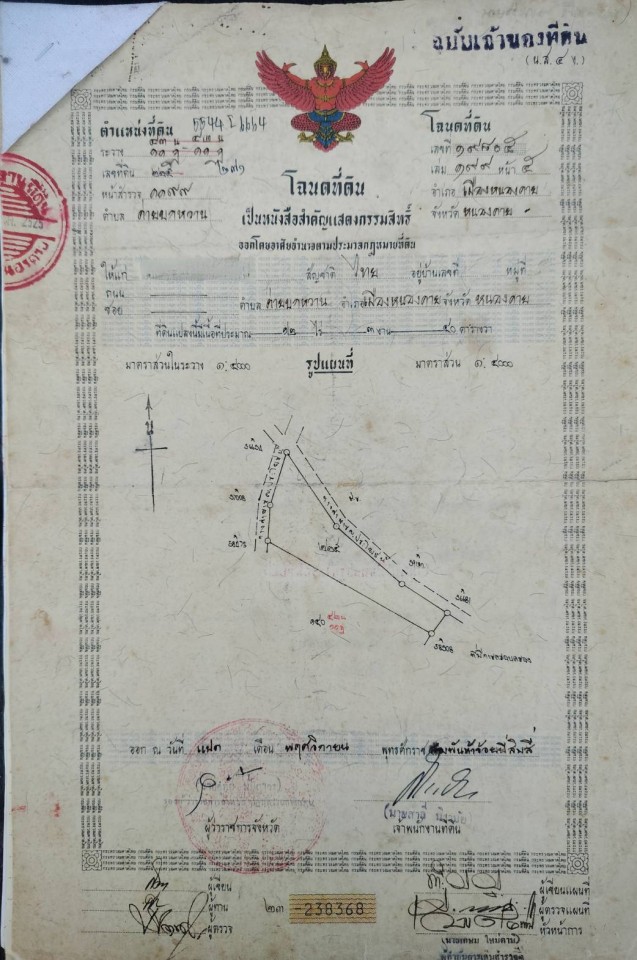 ฉบับเจ้าของที่ดิน
(น.ส. ๔ จ.)
ตำแหน่งที่ดิน
5544 I 6664
ระวาง
เลขที่ดิน
หน้าสำรวจ ๑๑๙๙
ตำบล ค่ายบกหวาน
โฉนดที่ดิน
เลขที่ ๑๙๘๐๕
เล่ม ๑๙๙ หน้า ๕
อำเภอ เมืองหนองคาย
จังหวัด หนองคาย
โฉนดที่ดิน
เป็นหนังสือสำคัญแสดงกรรมสิทธิ์
ออกโดยอาศัยอำนาจตามประมวลกฎหมายที่ดิน
ให้แก่ สัญชาติ ไทย อยู่บ้านเลขที่ หมู่ที่
ถนน
ซอย ตำบล ค่ายบกหวาน อำเภอ เมืองหนองคาย จังหวัด หนองคาย
ที่ดินแปลงนี้มีเนื้อที่ประมาณ ๑๒ ไร่ ๓ งาน ๕๐ ตารางวา
มาตราส่วนในระวาง ๑:๔๐๐๐ รูปแผนที่ มาตราส่วน ๑:๔๐๐๐
น
ทางสาธารณประโยชน์
ทางสาธารณประโยชน์
๑๔๐
ออก ณ วันที่ แปด เดือน พฤศจิกายน พุทธศักราช สองพันห้าร้อยยี่สิบสี่
ผู้ว่าราชการจังหวัด
เจ้าพนักงานที่ดิน
ผู้เขียน
ผู้ทาน
ผู้ตรวจ
๒๓ -238368-
ผู้เขียนแผนที่
ผู้ตรวจแผนที่
หัวหน้าการ